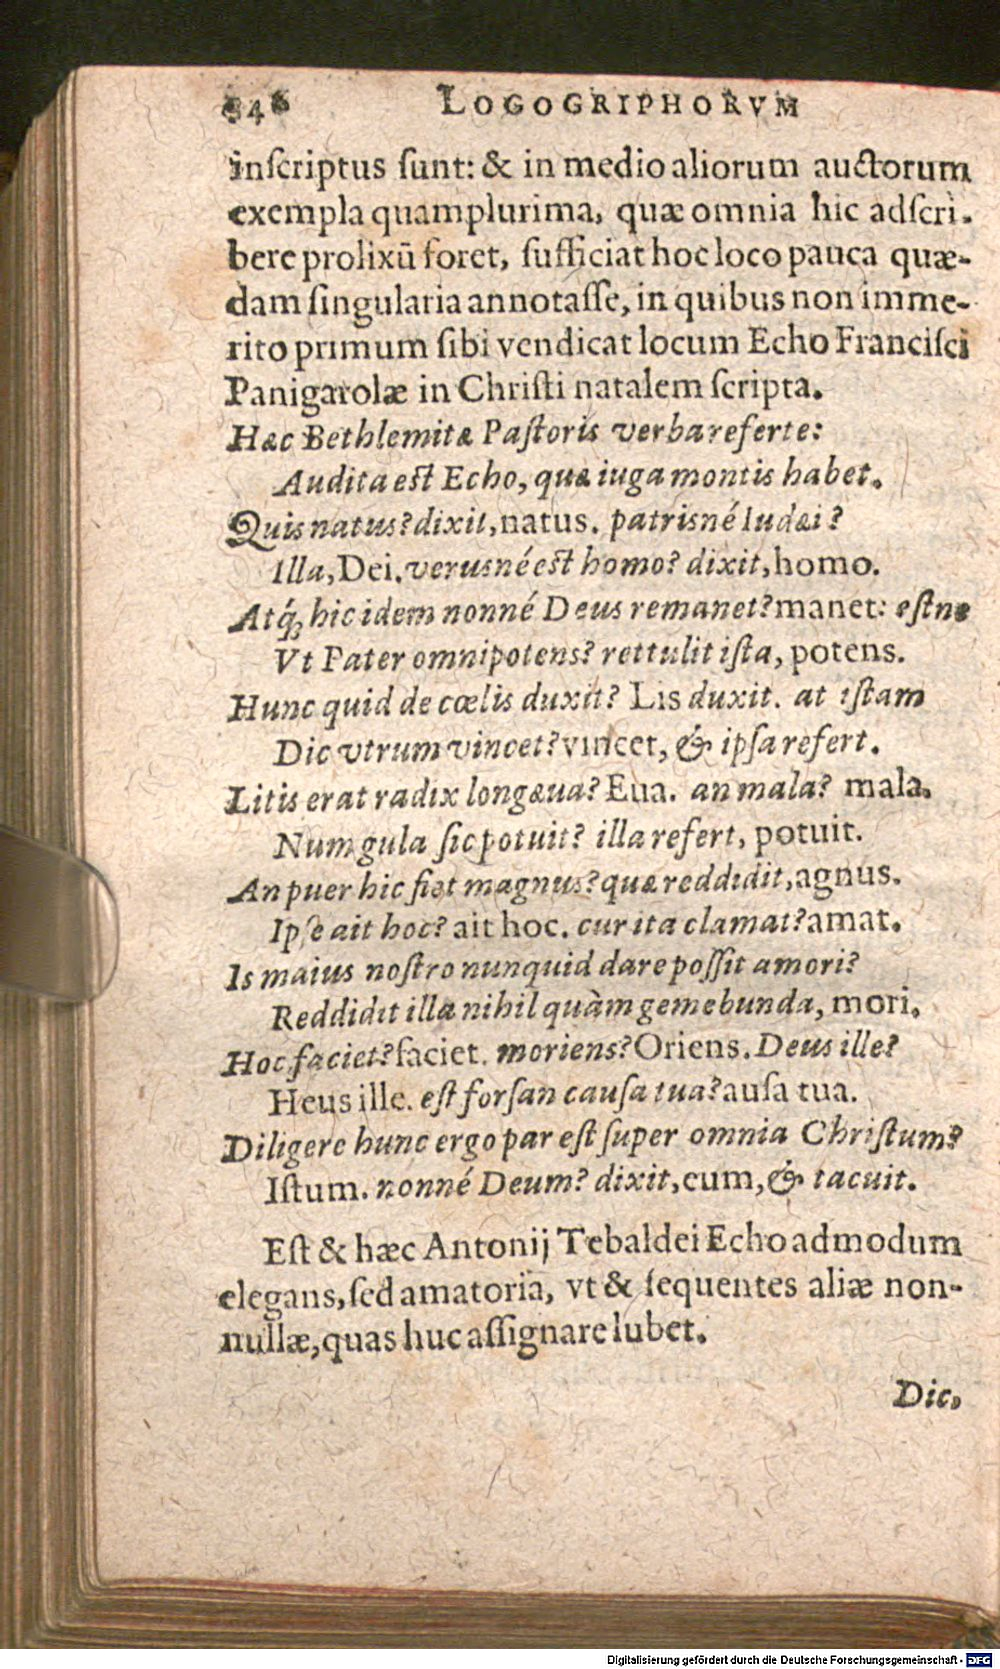 LOGOGRIPHORVM
inſcriptus ſunt: & in medio aliorum auctorum
exempla quamplurima, quæ omnia hic adſcri-
bere prolixū foret, ſufficiat hoc loco pauca quæ-
dam ſingularia annotaſſe, in quibus non imme-
rito primum ſibi vendicat locum Echo Franciſci
Panigarolæ in Chriſti natalem ſcripta.
Hæc Bethlemitæ Paſtoris verba referte:
Audita eſt Echo, quæ iuga montis habet.
Quis natus? dixit, natus. patrisné Iudæi?
Illa, Dei. verusné eſt homo? dixit, homo.
Atq́; hic idem nonné Deus remanet? manet: eſtne
Vt Pater omnipotens? rettulit iſta, potens.
Hunc quid de cœlis duxit? Lis duxit. at iſtam
Dic vtrum vincet? vincet, & ipſa refert.
Litis erat radix longæua? Eua. an mala? mala.
Num gula ſic potuit? illa refert, potuit.
An puer hic fiet magnus? quæ reddidit, agnus.
Ipſe ait hoc? ait hoc. cur ita clamat? amat.
Is maius noſtro nunquid dare poſſit amori?
Reddidit illa nihil quàm gemebunda, mori.
Hoc faciet? faciet. moriens? Oriens. Deus ille?
Heus ille. eſt forſan cauſa tua? auſa tua.
Diligere hunc ergo par eſt ſuper omnia Chriſtum?
Iſtum. nonné Deum? dixit, eum, & tacuit.
Eſt & hæc Antonij Tebaldei Echo admodum
elegans, ſed amatoria, vt & ſequentes aliæ non-
nullæ, quas huc aſſignare lubet.
Dic,
Digitalisierung gefördert durch die Deutsche Forschungsgemeinschaft - DFG